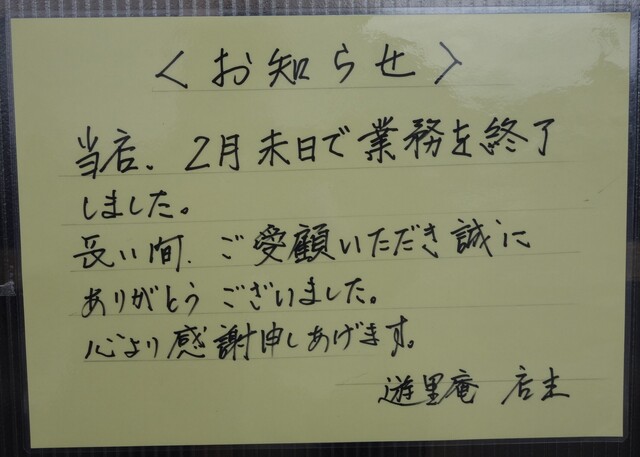 〈お知らせ〉
当店、2月末日で業務を終了
しました。
長い間、ご愛顧いただき誠に
ありがとうございました。
心より感謝申しあげます。
遊里庵 店主